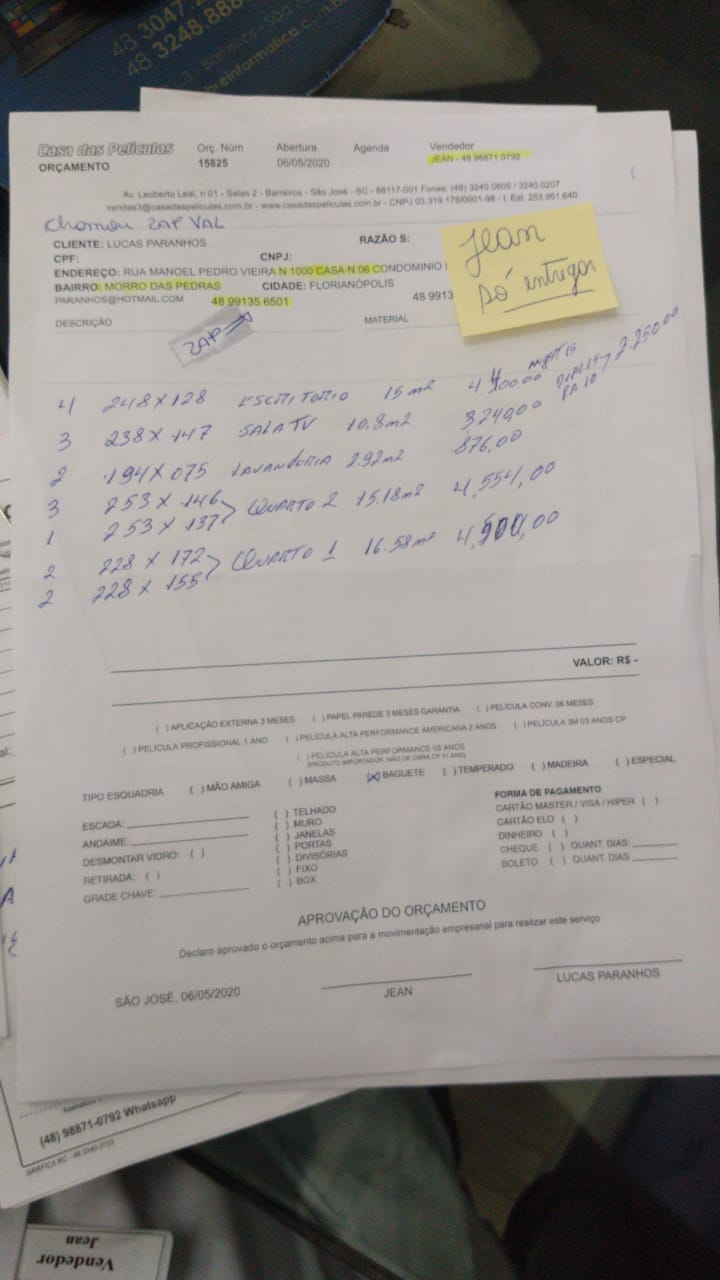 48 3047.2
48 3248.888
3 - Barreiros - São
breinformatica.com.br
Casa das Películas
ORÇAMENTO
Orç. Núm
15825
Abertura
06/05/2020
Agenda
Vendedor
JEAN - 48 98871 0792
Av. Leoberto Leal, n 01 - Salas 2 - Barreiros - São José - SC - 88117-001 Fones: (48) 3240.0605 / 3240.0207
vendas3@casadaspeliculas.com.br - www.casadaspeliculas.com.br - CNPJ 03.319.178/0001-98 - I. Est. 253.951.640
Chamou ZAP VAL
CLIENTE: LUCAS PARANHOS
RAZÃO S:
CPF:
CNPJ:
ENDEREÇO: RUA MANOEL PEDRO VIEIRA N 1000 CASA N 06 CONDOMINIO
BAIRRO: MORRO DAS PEDRAS
CIDADE: FLORIANÓPOLIS
PARANHOS@HOTMAIL.COM
48 99135 6501
48 9913
Jean
só entregar
DESCRIÇÃO
MATERIAL
ZAP
4 248 X 128 ESCRITORIO 15 m²
2.250,00
3 238 X 147 SALA TV 10.8 m² 3.240,00
2 194 X 075 LAVANDERIA 2.92 m² 876,00
3 253 X 146
1 253 X 137 QUARTO 2 15.18 m² 4,554,00
2 228 X 172
2 228 X 155 QUARTO 1 16.58 m² 4,900,00
VALOR: R$ -
( ) APLICAÇÃO EXTERNA 3 MESES ( ) PAPEL PAREDE 3 MESES GARANTIA ( ) PELÍCULA CONV. 06 MESES
( ) PELÍCULA PROFISSIONAL 1 ANO ( ) PELÍCULA ALTA PERFORMANCE AMERICANA 2 ANOS ( ) PELÍCULA 3M 03 ANOS CP
( ) PELÍCULA ALTA PERFORMANCE 05 ANOS
(PRODUTO IMPORTADOR, MÃO DE OBRA CP 01 ANO)
TIPO ESQUADRIA ( ) MÃO AMIGA ( ) MASSA (X) BAGUETE ( ) TEMPERADO ( ) MADEIRA ( ) ESPECIAL
ESCADA:
ANDAIME:
DESMONTAR VIDRO: ( )
RETIRADA: ( )
GRADE CHAVE:
( ) TELHADO
( ) MURO
( ) JANELAS
( ) PORTAS
( ) DIVISÓRIAS
( ) FIXO
( ) BOX
FORMA DE PAGAMENTO
CARTÃO MASTER / VISA / HIPER ( )
CARTÃO ELO ( )
DINHEIRO ( )
CHEQUE ( ) QUANT. DIAS:
BOLETO ( ) QUANT. DIAS
APROVAÇÃO DO ORÇAMENTO
Declaro aprovado o orçamento acima para a movimentação empresarial para realizar este serviço
SÃO JOSÉ, 06/05/2020
JEAN
LUCAS PARANHOS
(48) 98871-0792 Whatsapp
GRÁFICA RC - 48 3240-3733
Vendedor
Jean